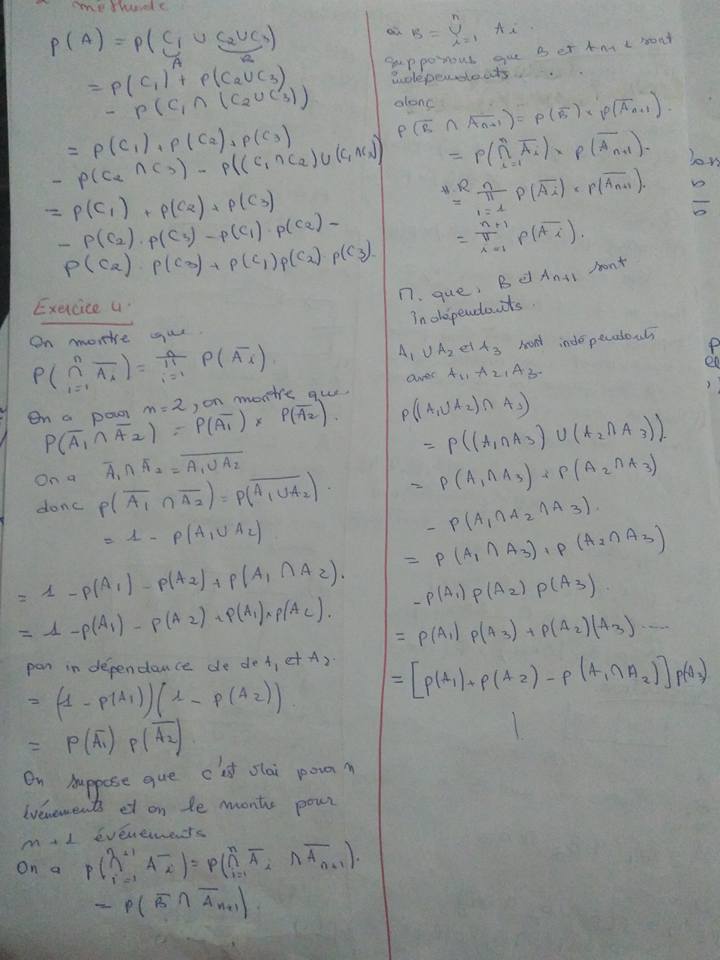 methode.
P(A) = P(C₁ ∪ C₂∪C₃)
A B
= P(C₁) + P(C₂∪C₃)
- P(C₁ ∩ (C₂∪C₃))
= P(C₁) + P(C₂) + P(C₃)
- P(C₂ ∩ C₃) - P((C₁∩C₂)∪(C₁∩C₃))
= P(C₁) + P(C₂) + P(C₃)
- P(C₂).P(C₃) - P(C₁).P(C₂) -
P(C₂).P(C₃) + P(C₁)P(C₂).P(C₃).
Exercice 4.
On montre que
P(⋂ⁿᵢ₌₁ A̅ᵢ) = πⁿᵢ₌₁ P(A̅ᵢ).
On a pour n=2, on montre que
P(A̅₁ ∩ A̅₂) = P(A̅₁) × P(A̅₂).
On a A̅₁ ∩ A̅₂ = \overline{A₁∪A₂}
donc P(A̅₁ ∩ A̅₂) = P(\overline{A₁∪A₂}).
= 1 - P(A₁∪A₂)
= 1 - P(A₁) - P(A₂) + P(A₁ ∩ A₂).
= 1 - P(A₁) - P(A₂) + P(A₁)×P(A₂).
par indépendance de de A₁ et A₂.
= (1 - P(A₁))(1 - P(A₂))
= P(A̅₁) P(A̅₂)
On suppose que c'est vlai pour n
événements et on le montre pour
n+1 événements
On a P(⋂ⁿ⁺¹ᵢ₌₁ A̅ᵢ) = P(⋂ⁿᵢ₌₁ A̅ᵢ ∩ A̅ₙ₊₁).
= P(B̅ ∩ A̅ₙ₊₁).
où B = ⋃ⁿᵢ₌₁ Aᵢ
supposons que B et Aₙ₊₁ sont
indépendants. . .
alonc
P(B̅ ∩ A̅ₙ₊₁) = P(B̅) × P(A̅ₙ₊₁).
= P(⋂ⁿᵢ₌₁ A̅ᵢ) × P(A̅ₙ₊₁).
H.R = πⁿᵢ₌₁ P(A̅ᵢ) × P(A̅ₙ₊₁).
= πⁿ⁺¹ᵢ₌₁ P(A̅ᵢ).
M. que, B et Aₙ₊₁ sont
indépendants.
A₁ ∪ A₂ et A₃ sont indépendants
avec A₁, A₂, A₃.
P((A₁∪A₂) ∩ A₃)
= P((A₁∩A₃) ∪ (A₂∩A₃)).
= P(A₁∩A₃) + P(A₂∩A₃)
- P(A₁∩A₂∩A₃).
= P(A₁∩A₃) + P(A₂∩A₃)
- P(A₁) P(A₂) P(A₃).
= P(A₁) P(A₃) + P(A₂)(A₃) .....
= [P(A₁) + P(A₂) - P(A₁∩A₂)] P(A₃)